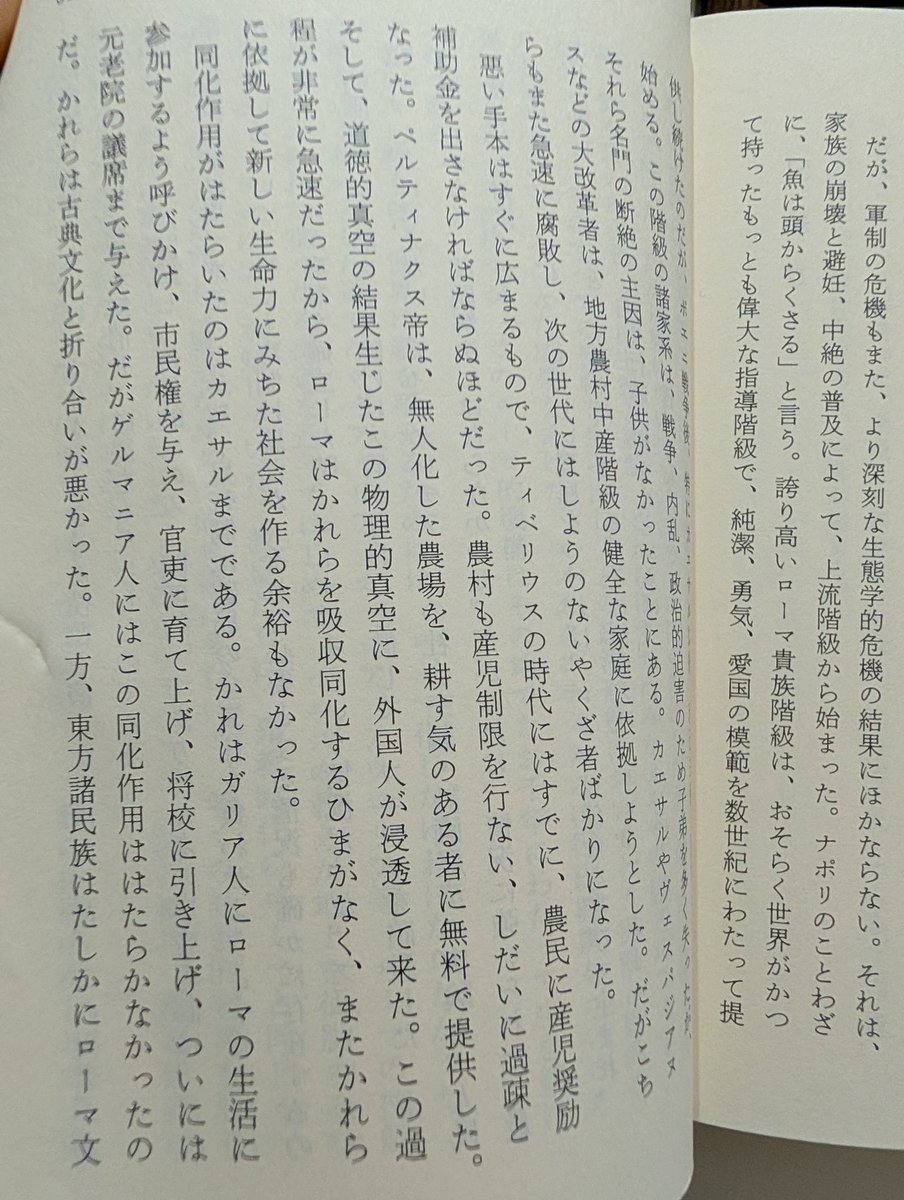 だが、軍制の危機もまた、より深刻な生態学的危機の結果にほかならない。それは、
家族の崩壊と避妊、中絶の普及によって、上流階級から始まった。ナポリのことわざ
に、「魚は頭からくさる」と言う。誇り高いローマ貴族階級は、おそらく世界がかつ
て持ったもっとも偉大な指導階級で、純潔、勇気、愛国の模範を数世紀にわたって提
供し続けたのだが、ポエニ戦争後、特にカエサル
始める。この階級の諸家系は、戦争、内乱、政治的迫害のため子弟を多く失ったが、
それら名門の断絶の主因は、子供がなかったことにある。カエサルやヴェスパジアヌ
スなどの大改革者は、地方農村中産階級の健全な家庭に依拠しようとした。だがこち
らもまた急速に腐敗し、次の世代にはしようのないやくざ者ばかりになった。
悪い手本はすぐに広まるもので、ティベリウスの時代にはすでに、農民に産児奨励
補助金を出さなければならぬほどだった。農村も産児制限を行ない、しだいに過疎と
なった。ペルティナクス帝は、無人化した農場を、耕す気のある者に無料で提供した。
そして、道徳的真空の結果生じたこの物理的真空に、外国人が浸透して来た。この過
程が非常に急速だったから、ローマはかれらを吸収同化するひまがなく、またかれら
に依拠して新しい生命力にみちた社会を作る余裕もなかった。
同化作用がはたらいたのはカエサルまでである。かれはガリア人にローマの生活に
参加するよう呼びかけ、市民権を与え、官吏に育て上げ、将校に引き上げ、ついには
元老院の議席まで与えた。だがゲルマニア人にはこの同化作用ははたらかなかったの
だ。かれらは古典文化と折り合いが悪かった。一方、東方諸民族はたしかにローマ文